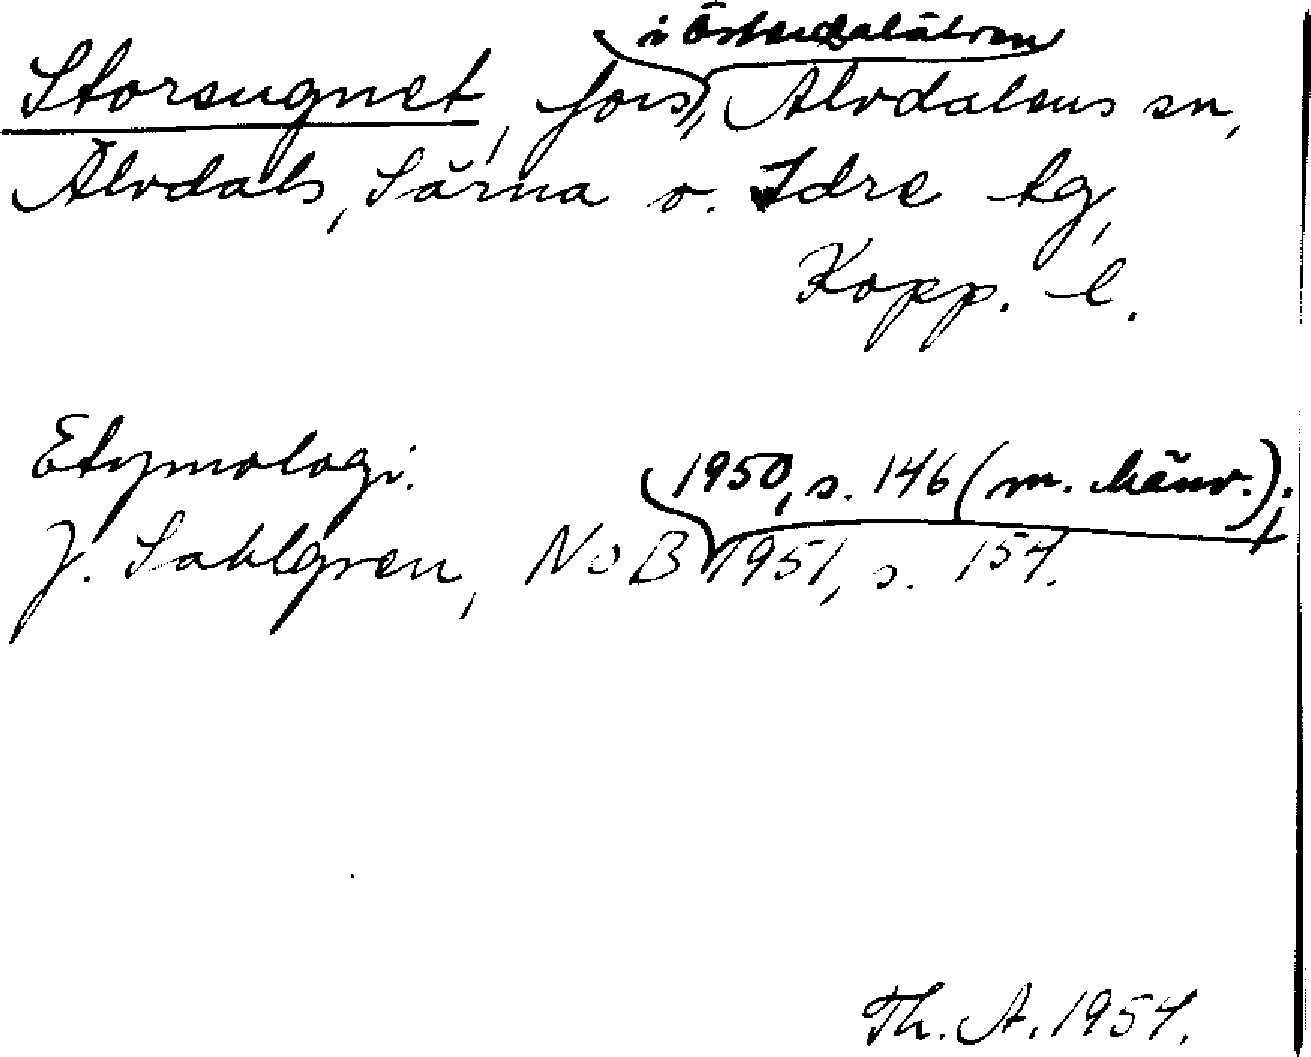 i Österdalälven
Storsugnet, fors, Älvdalens sn,
Älvdals, Särna o. Idre tg,
Kopp. l.
Etymologi.
1950, s. 146 (m. hänv.);
J. Sahlgren, NoB 1951, s. 154.
Th. A. 1954.